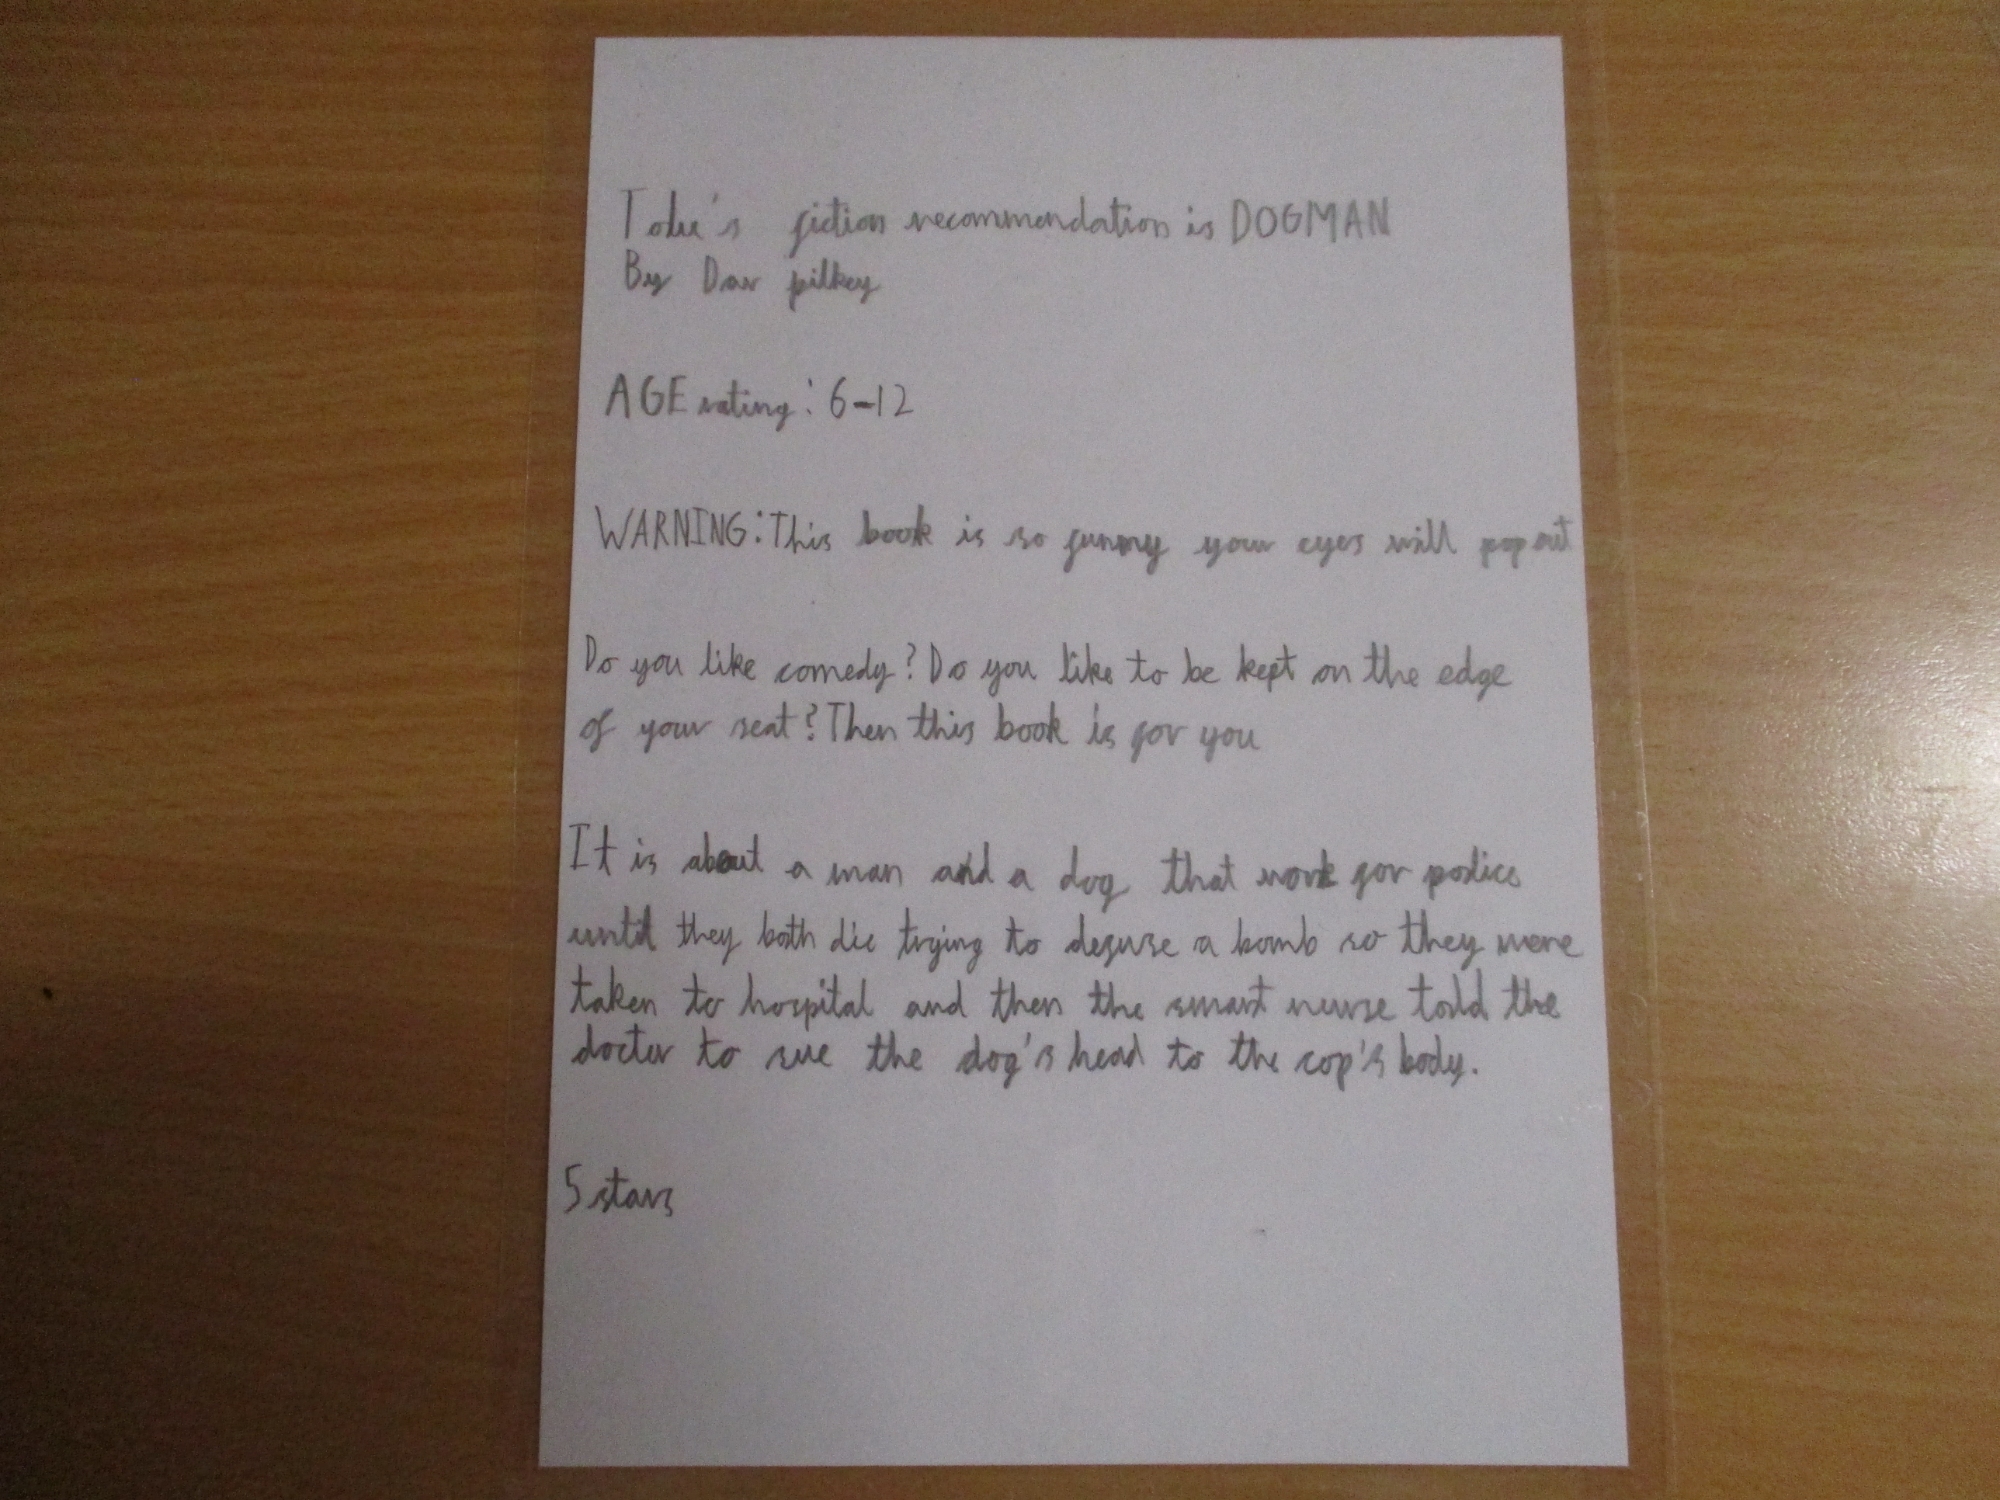 Tolu's fiction recommendation is DOGMAN
By Dav pilkey
AGE rating: 6-12
WARNING: This book is so funny your eyes will pop out
Do you like comedy? Do you like to be kept on the edge
of your seat? Then this book is for you
It is about a man and a dog that work for police
until they both die trying to defuse a bomb so they were
taken to hospital and then the smart nurse told the
doctor to sue the dog's head to the cop's body.
5 stars